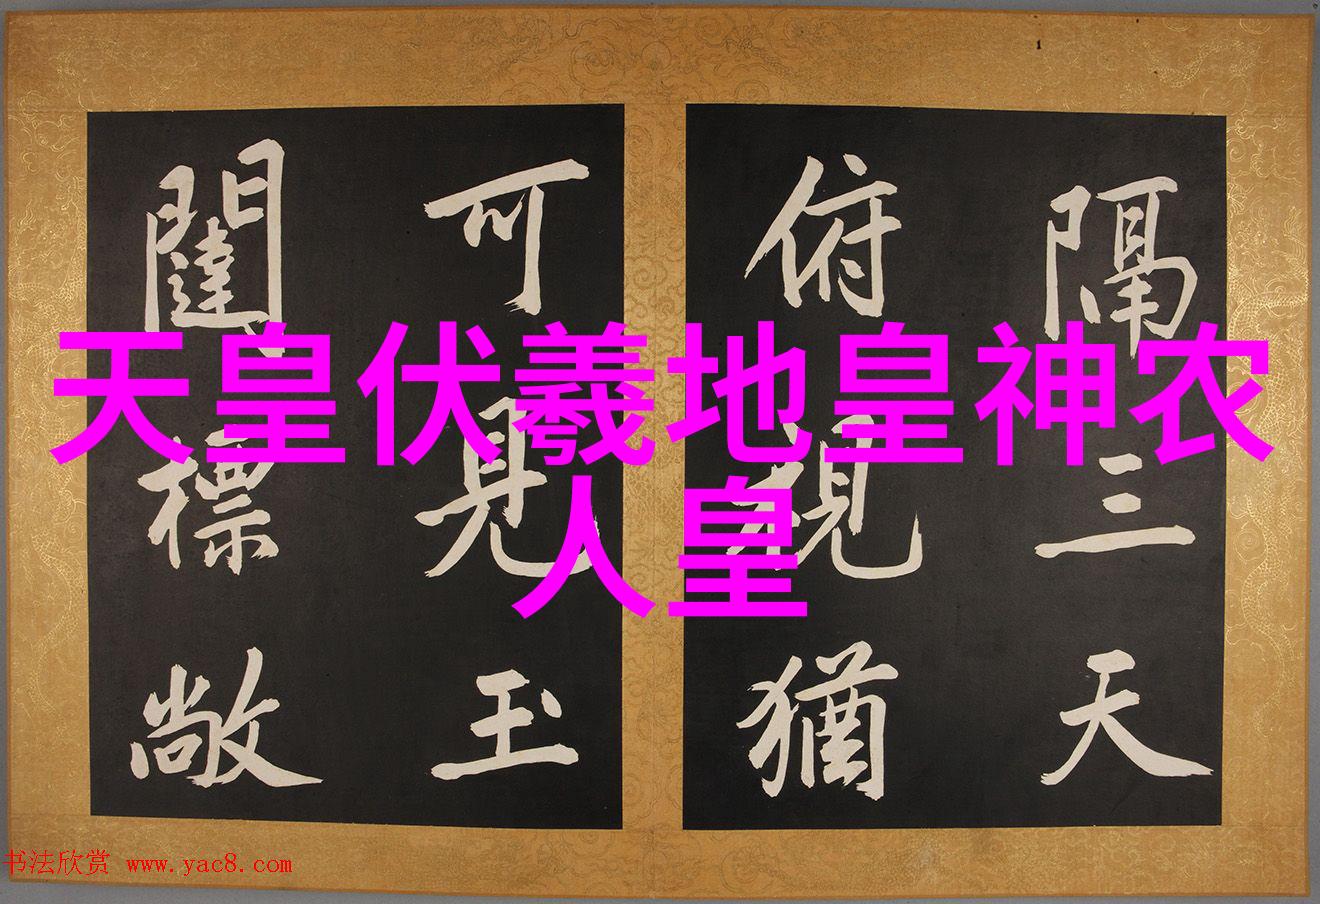 隔三天
俯視猶
可見玉
闥標敞
天皇伏羲地皇神农
人皇
书法欣赏 www.yac8.com